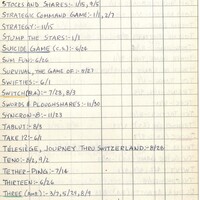 STOCKS AND SHARES:- 1/15, 9/5
STRATEGIC COMMAND GAME:- 1/1, 2/7
STRATEGY:- 11/15
STUMP THE STARS:- 1/1
SUICIDE GAME (C.S.):- 6/26
SUM FUN:- 6/26
SURVIVAL, THE GAME OF:- 5/27
SWIFTIES:- 6/1
SWITCH(MA):- 7/28, 8/3
SWORDS & PLOUGHSHARES:- 11/30
SYNCRON-8:- 11/23
TABLUT:- 8/3
TAKE 12:- 6/1
TELESIEGE, JOURNEY THRU SWITZERLAND:- 8/28
TENO:- 8/2, 9/2
TETHER-PING:- 7/14
THIRTEEN:- 6/26
THREE (AMB):- 3/7, 5/29, 8/9